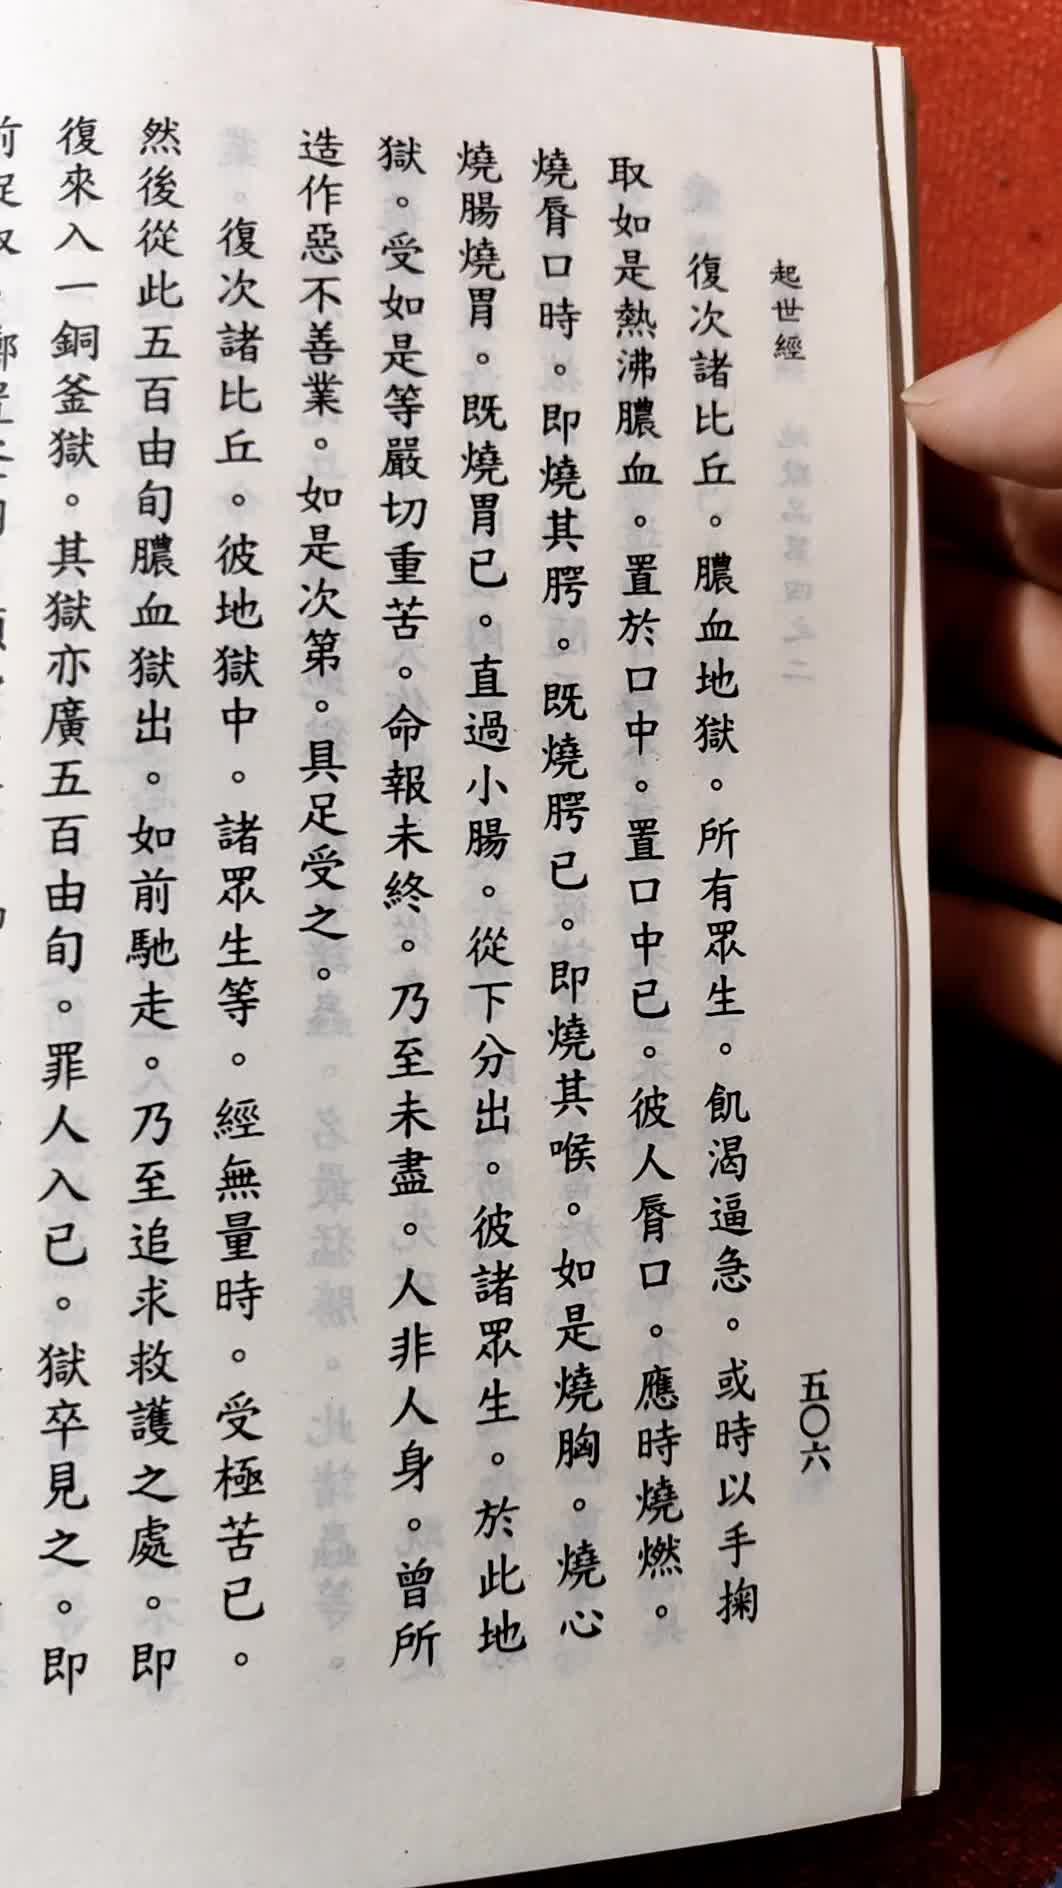 起世經
五〇六
復次諸比丘。膿血地獄。所有眾生。飢渴逼急。或時以手掬
取如是熱沸膿血。置於口中。置口中已。彼人脣口。應時燒燃。
燒脣口時。即燒其腭。既燒腭已。即燒其喉。如是燒胸。燒心
燒腸燒胃。既燒胃已。直過小腸。從下分出。彼諸眾生。於此地
獄。受如是等嚴切重苦。命報未終。乃至未盡。人非人身。曾所
造作惡不善業。如是次第。具足受之。
復次諸比丘。彼地獄中。諸眾生等。經無量時。受極苦已。
然後從此五百由旬膿血獄出。如前馳走。乃至追求救護之處。即
復來入一銅釜獄。其獄亦廣五百由旬。罪人入已。獄卒見之。即